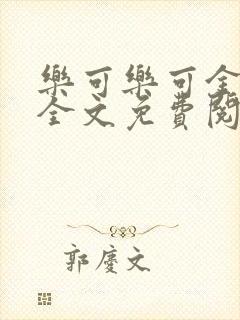 樂可樂可全
全文免費閱
郭慶文